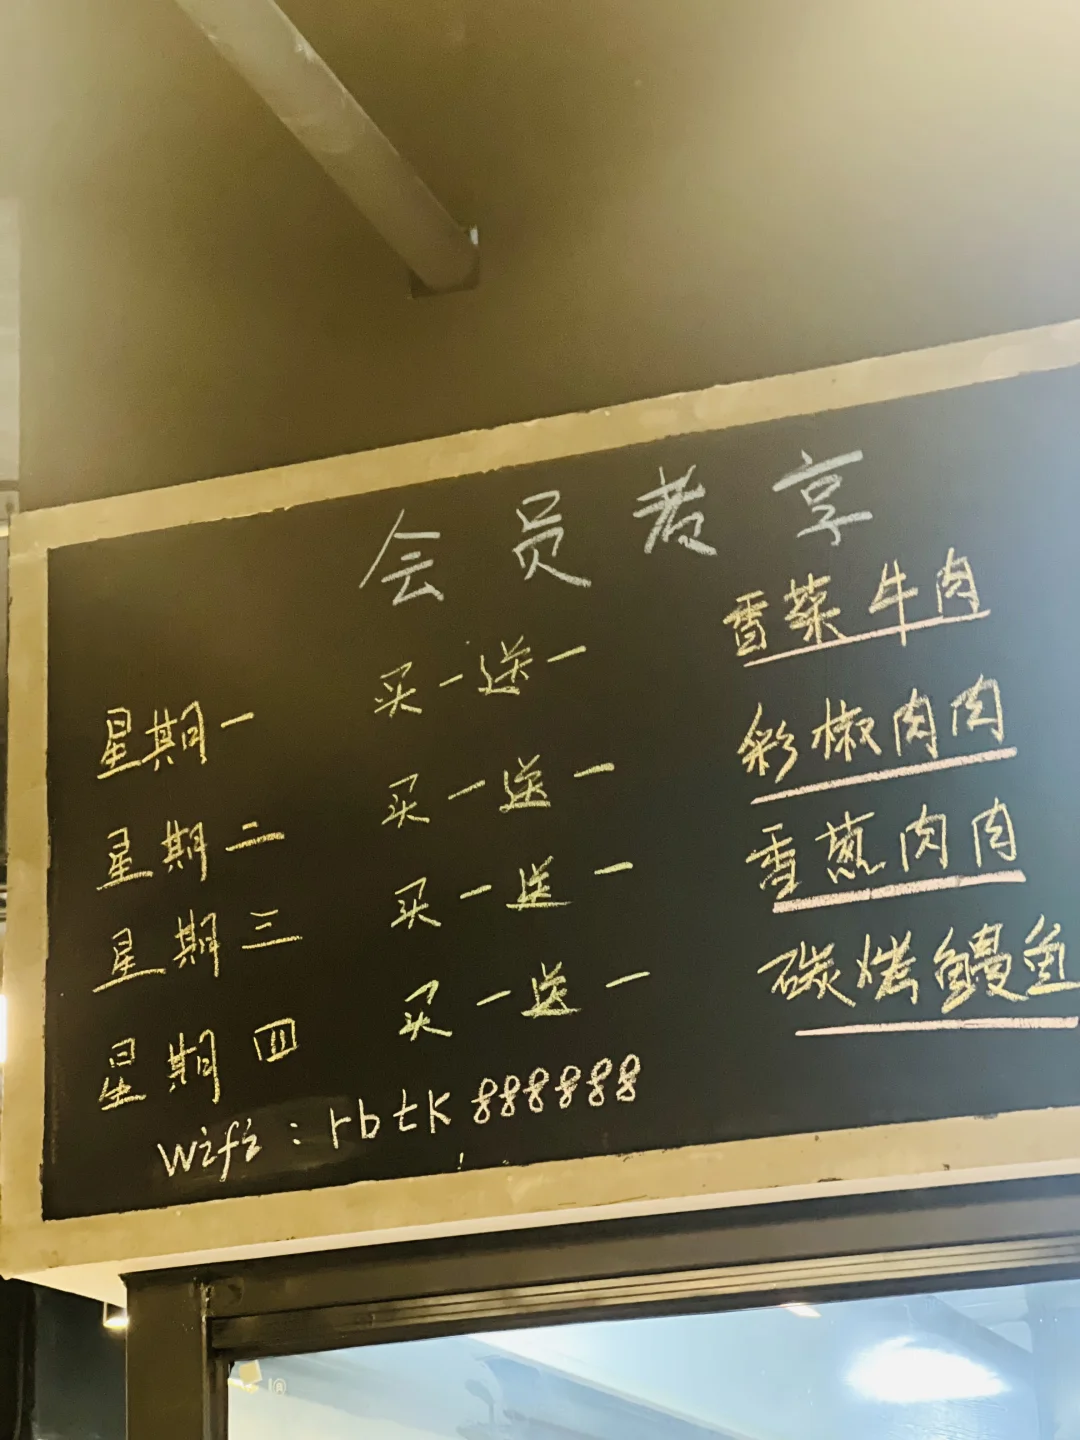 会员享
星期一 买一送一 香菜牛肉
星期二 买一送一 彩椒肉肉
星期三 买一送一 香葱肉肉
星期四 买一送一 碳烤鳗鱼
wifi：rbtk888888